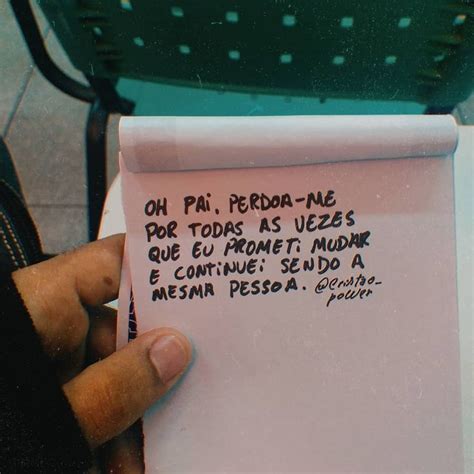 OH PAI, PERDOA-ME
POR TODAS AS VEZES
QUE EU PROMETI MUDAR
E CONTINUEI SENDO A
MESMA PESSOA. @cristao_
power